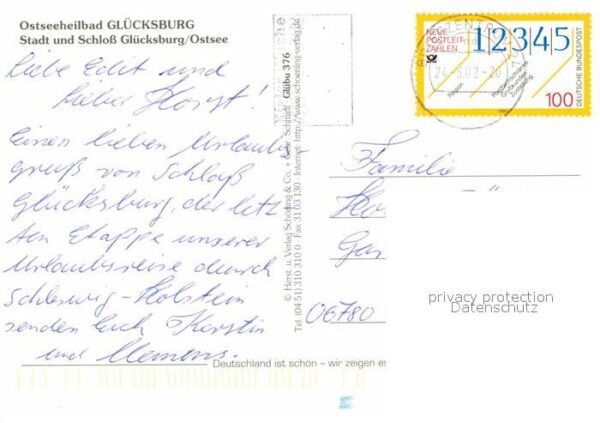 Ostseeheilbad GLÜCKSBURG
Stadt und Schloß Glücksburg/Ostsee
Liebe Edit und
lieber Horst!
Einen lieben Urlaubs-
gruß von Schloß
Glücksburg, der letz
ten Etappe unserer
Urlaubsreise durch
Schleswig-Holstein
senden Euch Kerstin
und Clemens.
Deutschland ist schön – wir zeigen es
© Herst. u. Verlag Schöning & Co. + Gebr. Schmidt
Glübu 376
Tel. (04 51) 310 310 0 Fax 31 03 130 Internet: http://www.schoening-verlag.de
NEUE
POSTLEIT
ZAHLEN
12345
Region
100
DEUTSCHE BUNDESPOST
24.5.02-20
Familie
06780
privacy protection
Datenschutz